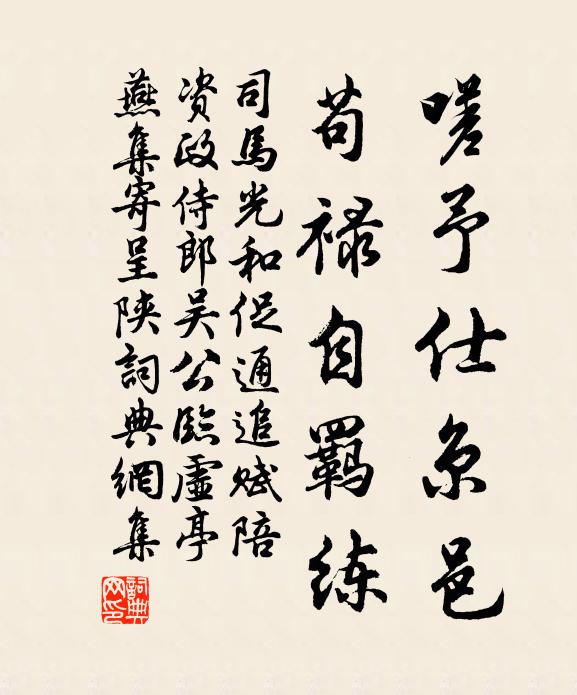 嗟予仕京邑
苟禄自羁练
司馬光和促通追赋陪
资政侍郎吴公臨虚亭
燕集寄呈陝詞典網集
詞典网印